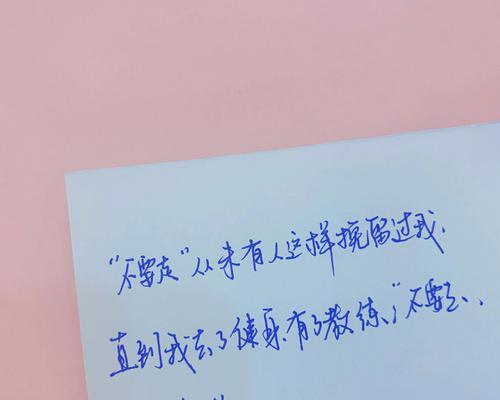 “不要走”从未有人这样挽留过我.
直到我去了健身.有了教练,“不要走.